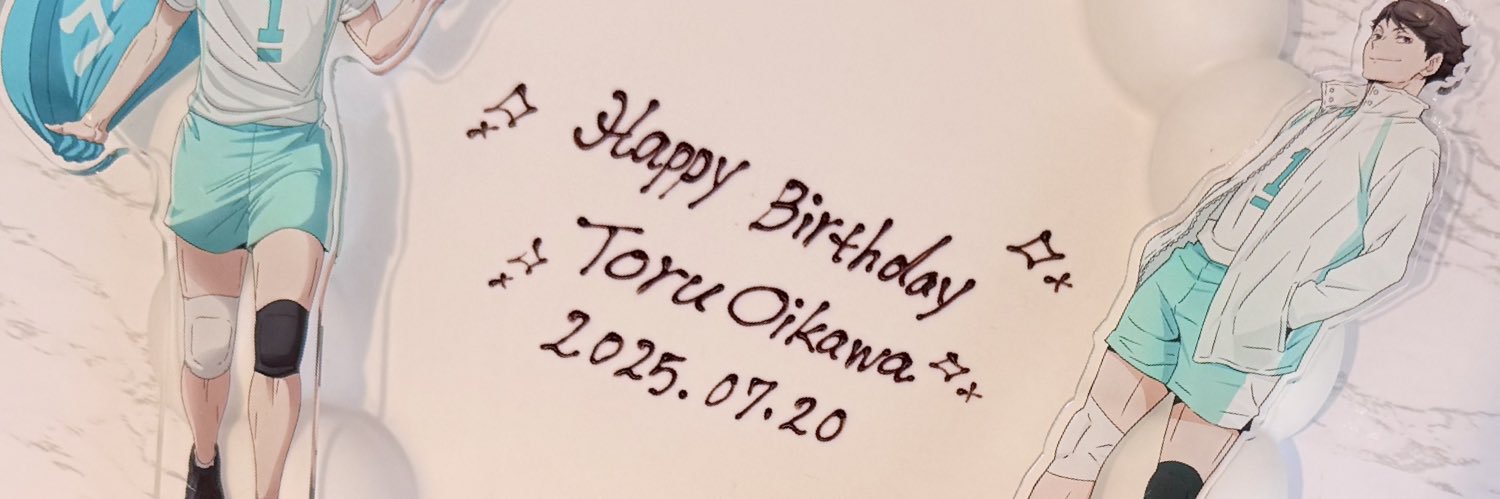 1
Happy Birthday
Toru Oikawa
2025.07.20
1